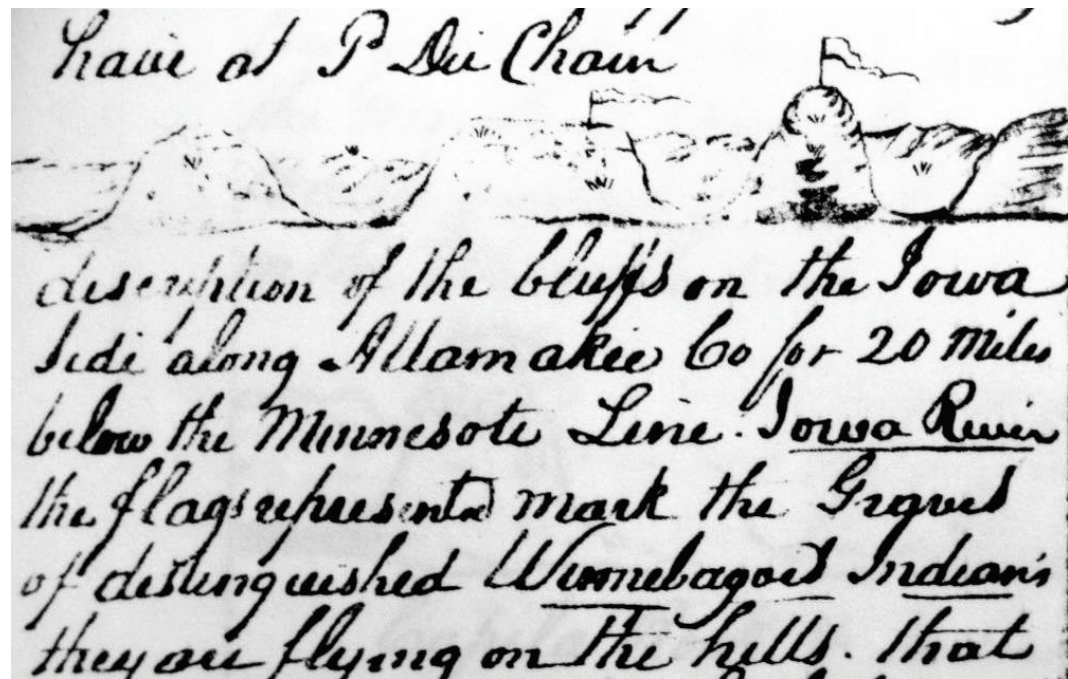 have at P Du Chain
description of the bluffs on the Iowa
side along Allamakee Co for 20 Miles
below the Minnesota Line. Iowa River
the flags represented mark the Graves
of distinguished Winnebagoes Indians
they are flying on the hills. that